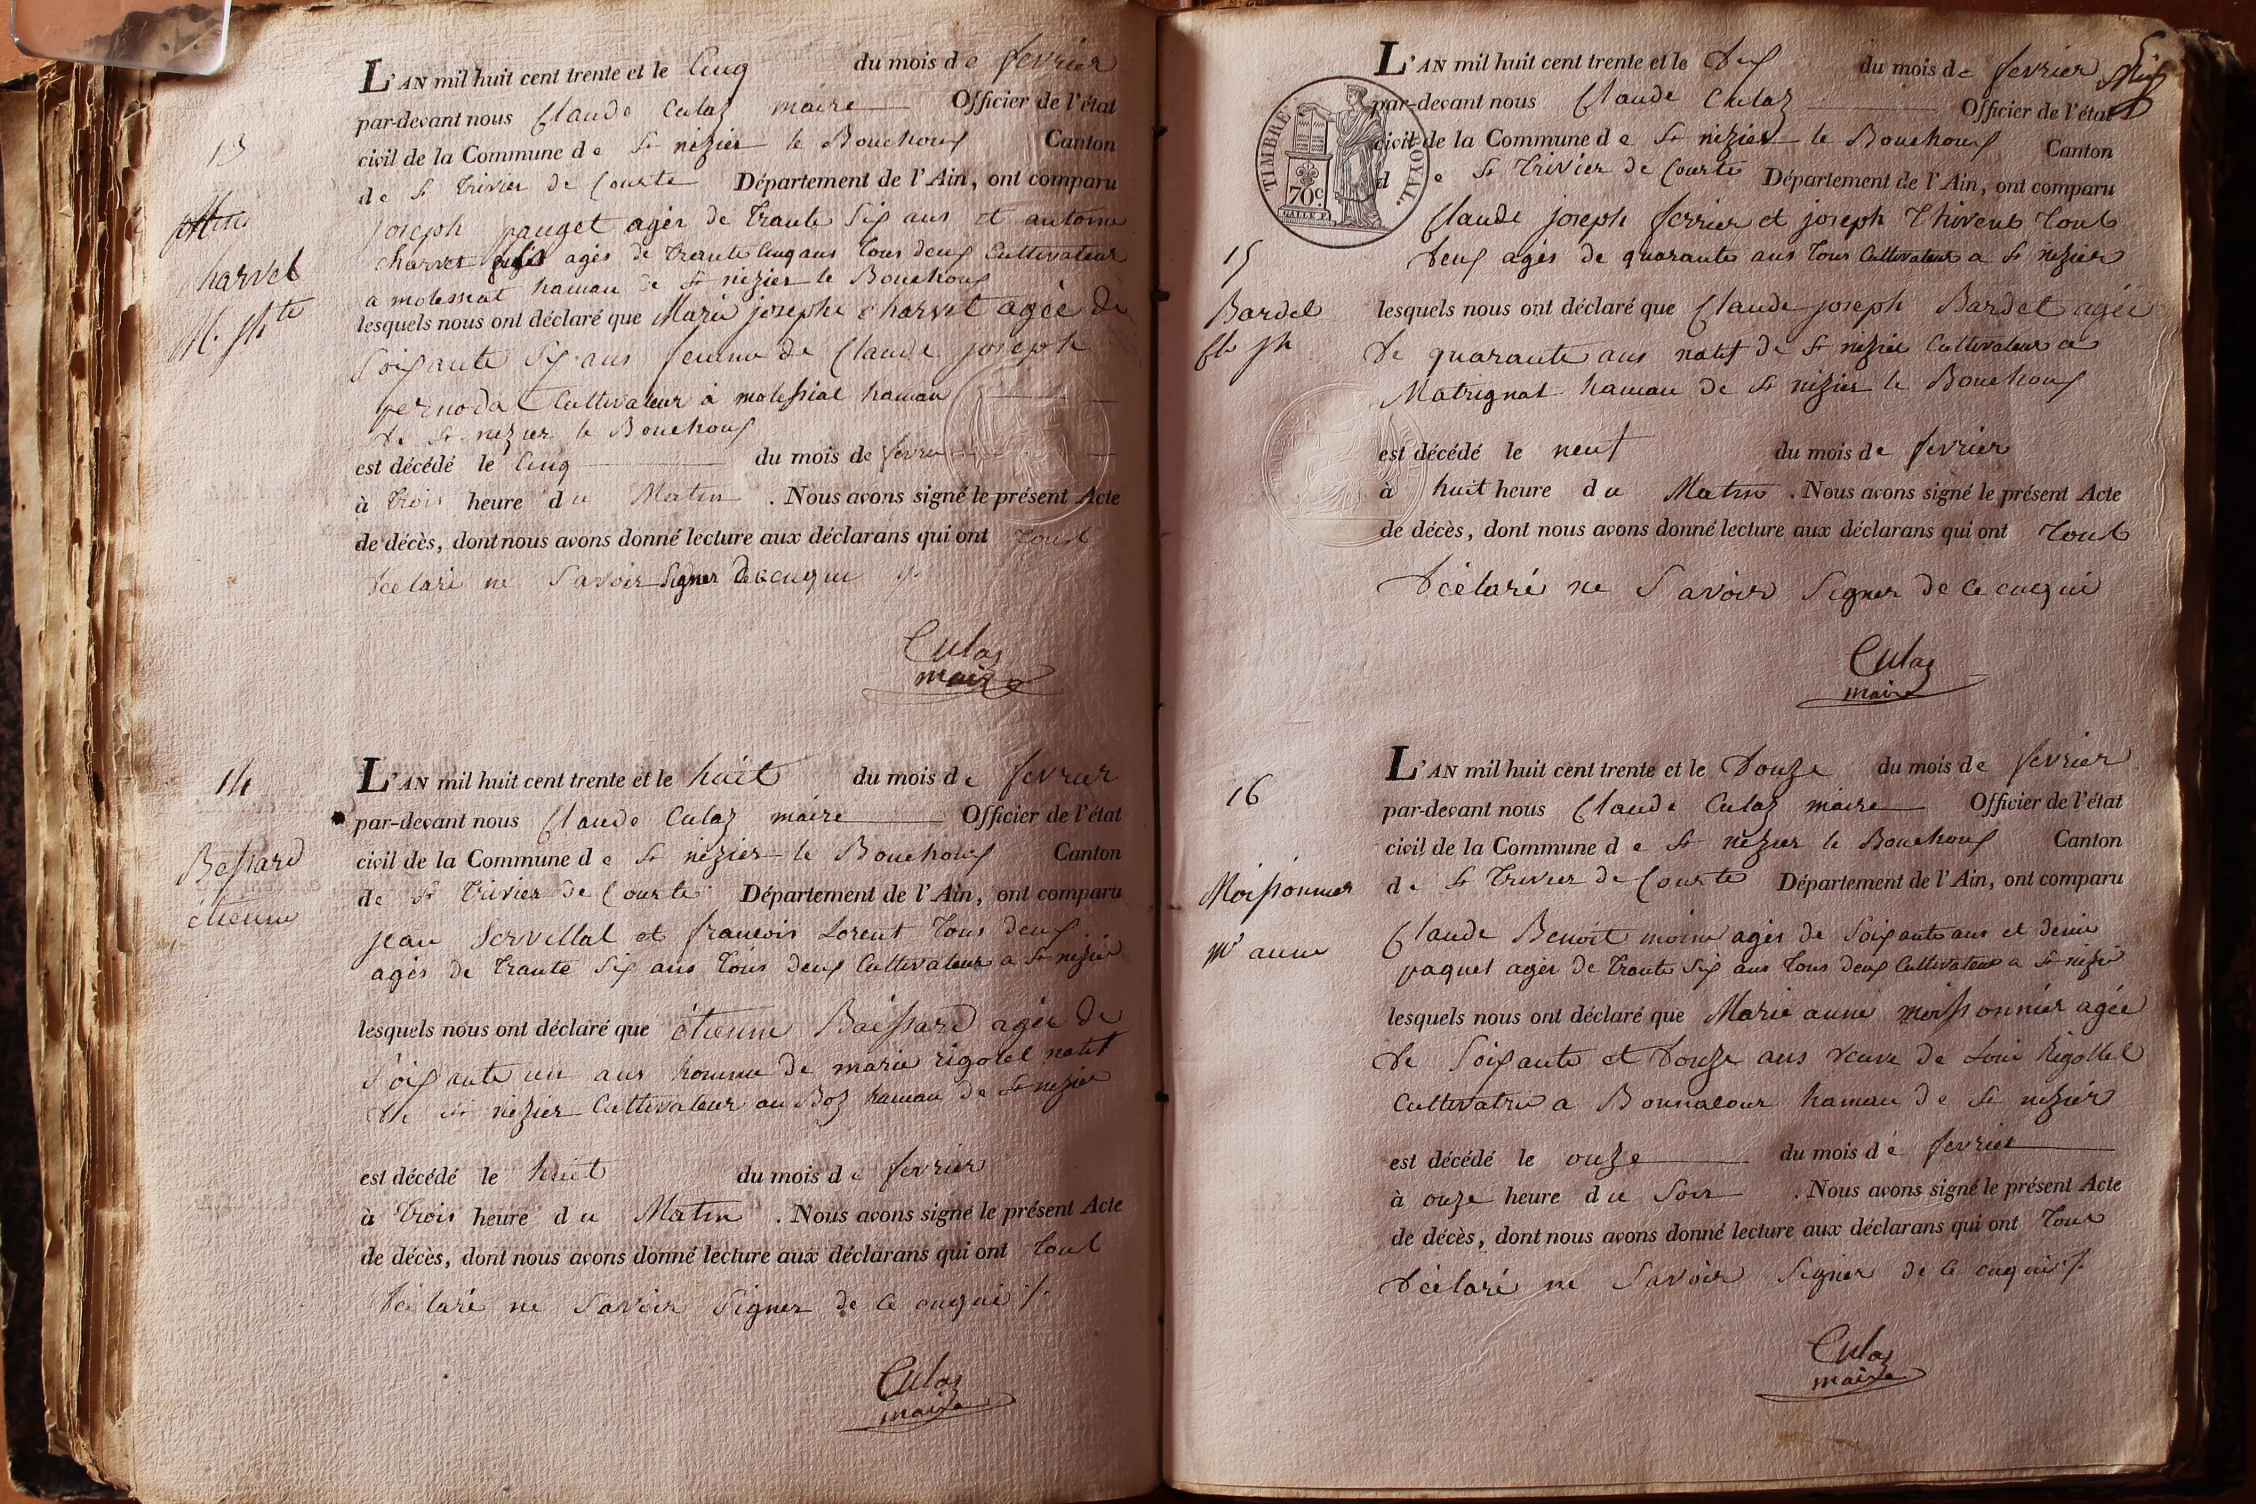 13
Charvet
M. Jhte
L'AN mil huit cent trente et le Cinq du mois de fevrier
par-devant nous Claude Culaz maire Officier de l'état
civil de la Commune de St nizier le Bouchoux Canton
de St Trivier de Courte Département de l'Ain, ont comparu
joseph pauget agés de trante Six ans et antoine
charvet agés de trante Cinq ans tous deux Cultivateur
a molessiat hamau de St nizier le Bouchoux
lesquels nous ont déclaré que Marie josephe charvet agée de
Soixante Six ans femme de Claude joseph
pernoda Cultivateur à molessiat hamau
de St nizier le Bouchoux
est décédé le Cinq du mois de fevrier
à trois heure du Matin . Nous avons signé le présent Acte
de décès, dont nous avons donné lecture aux déclarans qui ont tout
déclaré ne Savoir Signer de ce enquis
Culaz
maire
14
Bessard
étienne
L'AN mil huit cent trente et le huit du mois de fevrier
par-devant nous Claude Culaz maire Officier de l'état
civil de la Commune de St nizier le Bouchoux Canton
de St Trivier de Courte Département de l'Ain, ont comparu
jean Servillat et francois Lorent tous deux
agés de trante Six ans tous deux Cultivateur a St nizier
lesquels nous ont déclaré que étienne Baissard agés de
Soixante un ans homme de marie rigolet natif
de St nizier Cultivateur au Boz hamau de St nizier
est décédé le huit du mois de fevrier
à trois heure du Matin . Nous avons signé le présent Acte
de décès, dont nous avons donné lecture aux déclarans qui ont tout
déclaré ne Savoir Signer de ce enquis
Culaz
maire
TIMBRE ROYAL.
70c.
15
Bardet
Cl. jh
L'AN mil huit cent trente et le Dix du mois de fevrier
par-devant nous Claude Culaz Officier de l'état
civil de la Commune de St nizier le Bouchoux Canton
de St Trivier de Courte Département de l'Ain, ont comparu
Claude joseph ferrier et joseph Thivent tout
deux agés de quarante ans tous Cultivateur a St nizier
lesquels nous ont déclaré que Claude joseph Bardet agée
de quarante ans natif de St nizier Cultivateur a
Matrignat hamau de St nizier le Bouchoux
est décédé le neuf du mois de fevrier
à huit heure du Matin . Nous avons signé le présent Acte
de décès, dont nous avons donné lecture aux déclarans qui ont tout
déclaré ne Savoir Signer de ce enquis
Culaz
maire
16
Moissonnier
Mie anne
L'AN mil huit cent trente et le Douze du mois de fevrier
par-devant nous Claude Culaz maire Officier de l'état
civil de la Commune de St nizier le Bouchoux Canton
de St Trivier de Courte Département de l'Ain, ont comparu
Claude Benoit moine agés de Soixante ans et denis
paquet agés de trante Six ans tous deux Cultivateur a St nizier
lesquels nous ont déclaré que Marie anne moissonnier agée
de Soixante et Douze ans veuve de Loui Rigollet
Cultivatrice a Bonnacour hamau de St nizier
est décédé le onze du mois de fevrier
à onze heure du Soir . Nous avons signé le présent Acte
de décès, dont nous avons donné lecture aux déclarans qui ont tous
déclaré ne Savoir Signer de ce enquis
Culaz
maire